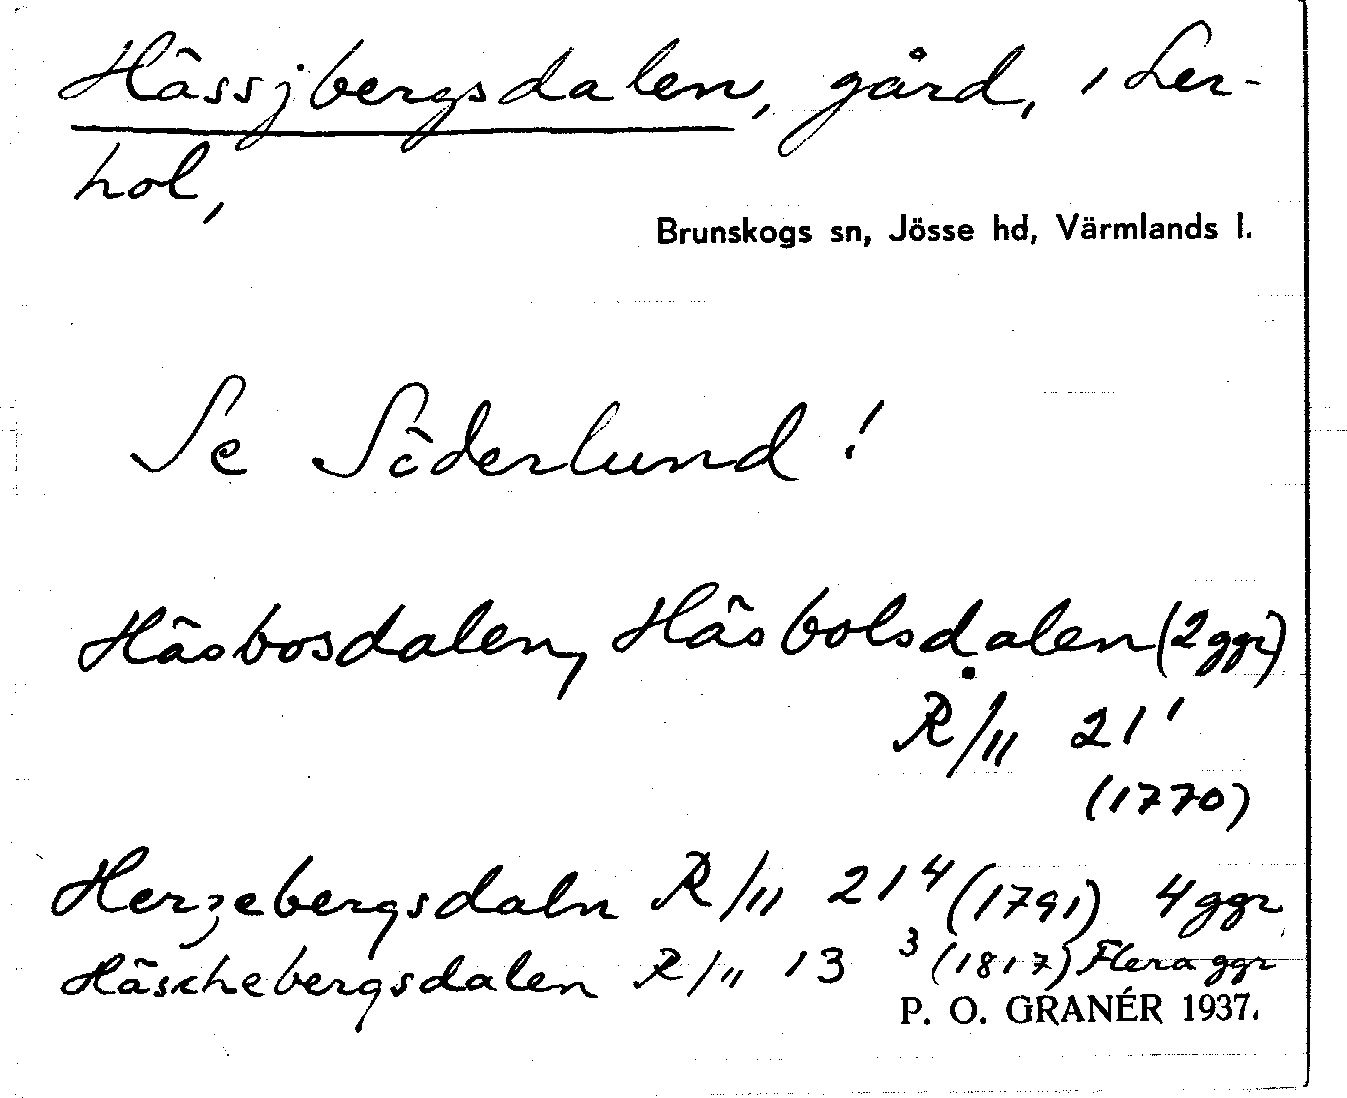 Hässjbergsdalen, gård, i Ler-
hol,
Brunskogs sn, Jösse hd, Värmlands l.
Se Söderlund!
Häsbosdalen, Häsbolsdalen (2 ggr)
R/II 21¹
(1770)
Herzebergsdaln R/II 21⁴ (1791) 4 ggr
Häschebergsdalen R/II 13³ (1817) Flera ggr
P. O. GRANÉR 1937.